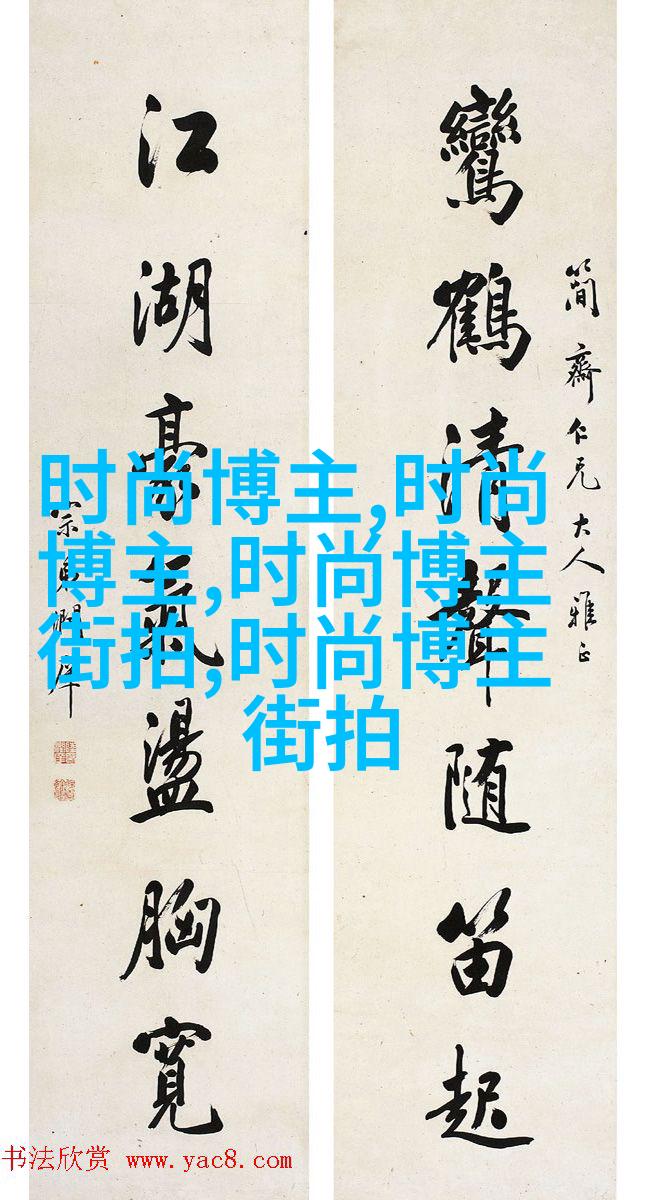 簡齋仁兄大人雅正
鸞鶴清聲随笛起
江湖豪氣盪胸寬
时尚博主,时尚
博主,时尚博主
街拍,时尚博主
街拍
书法欣赏 www.yac8.com